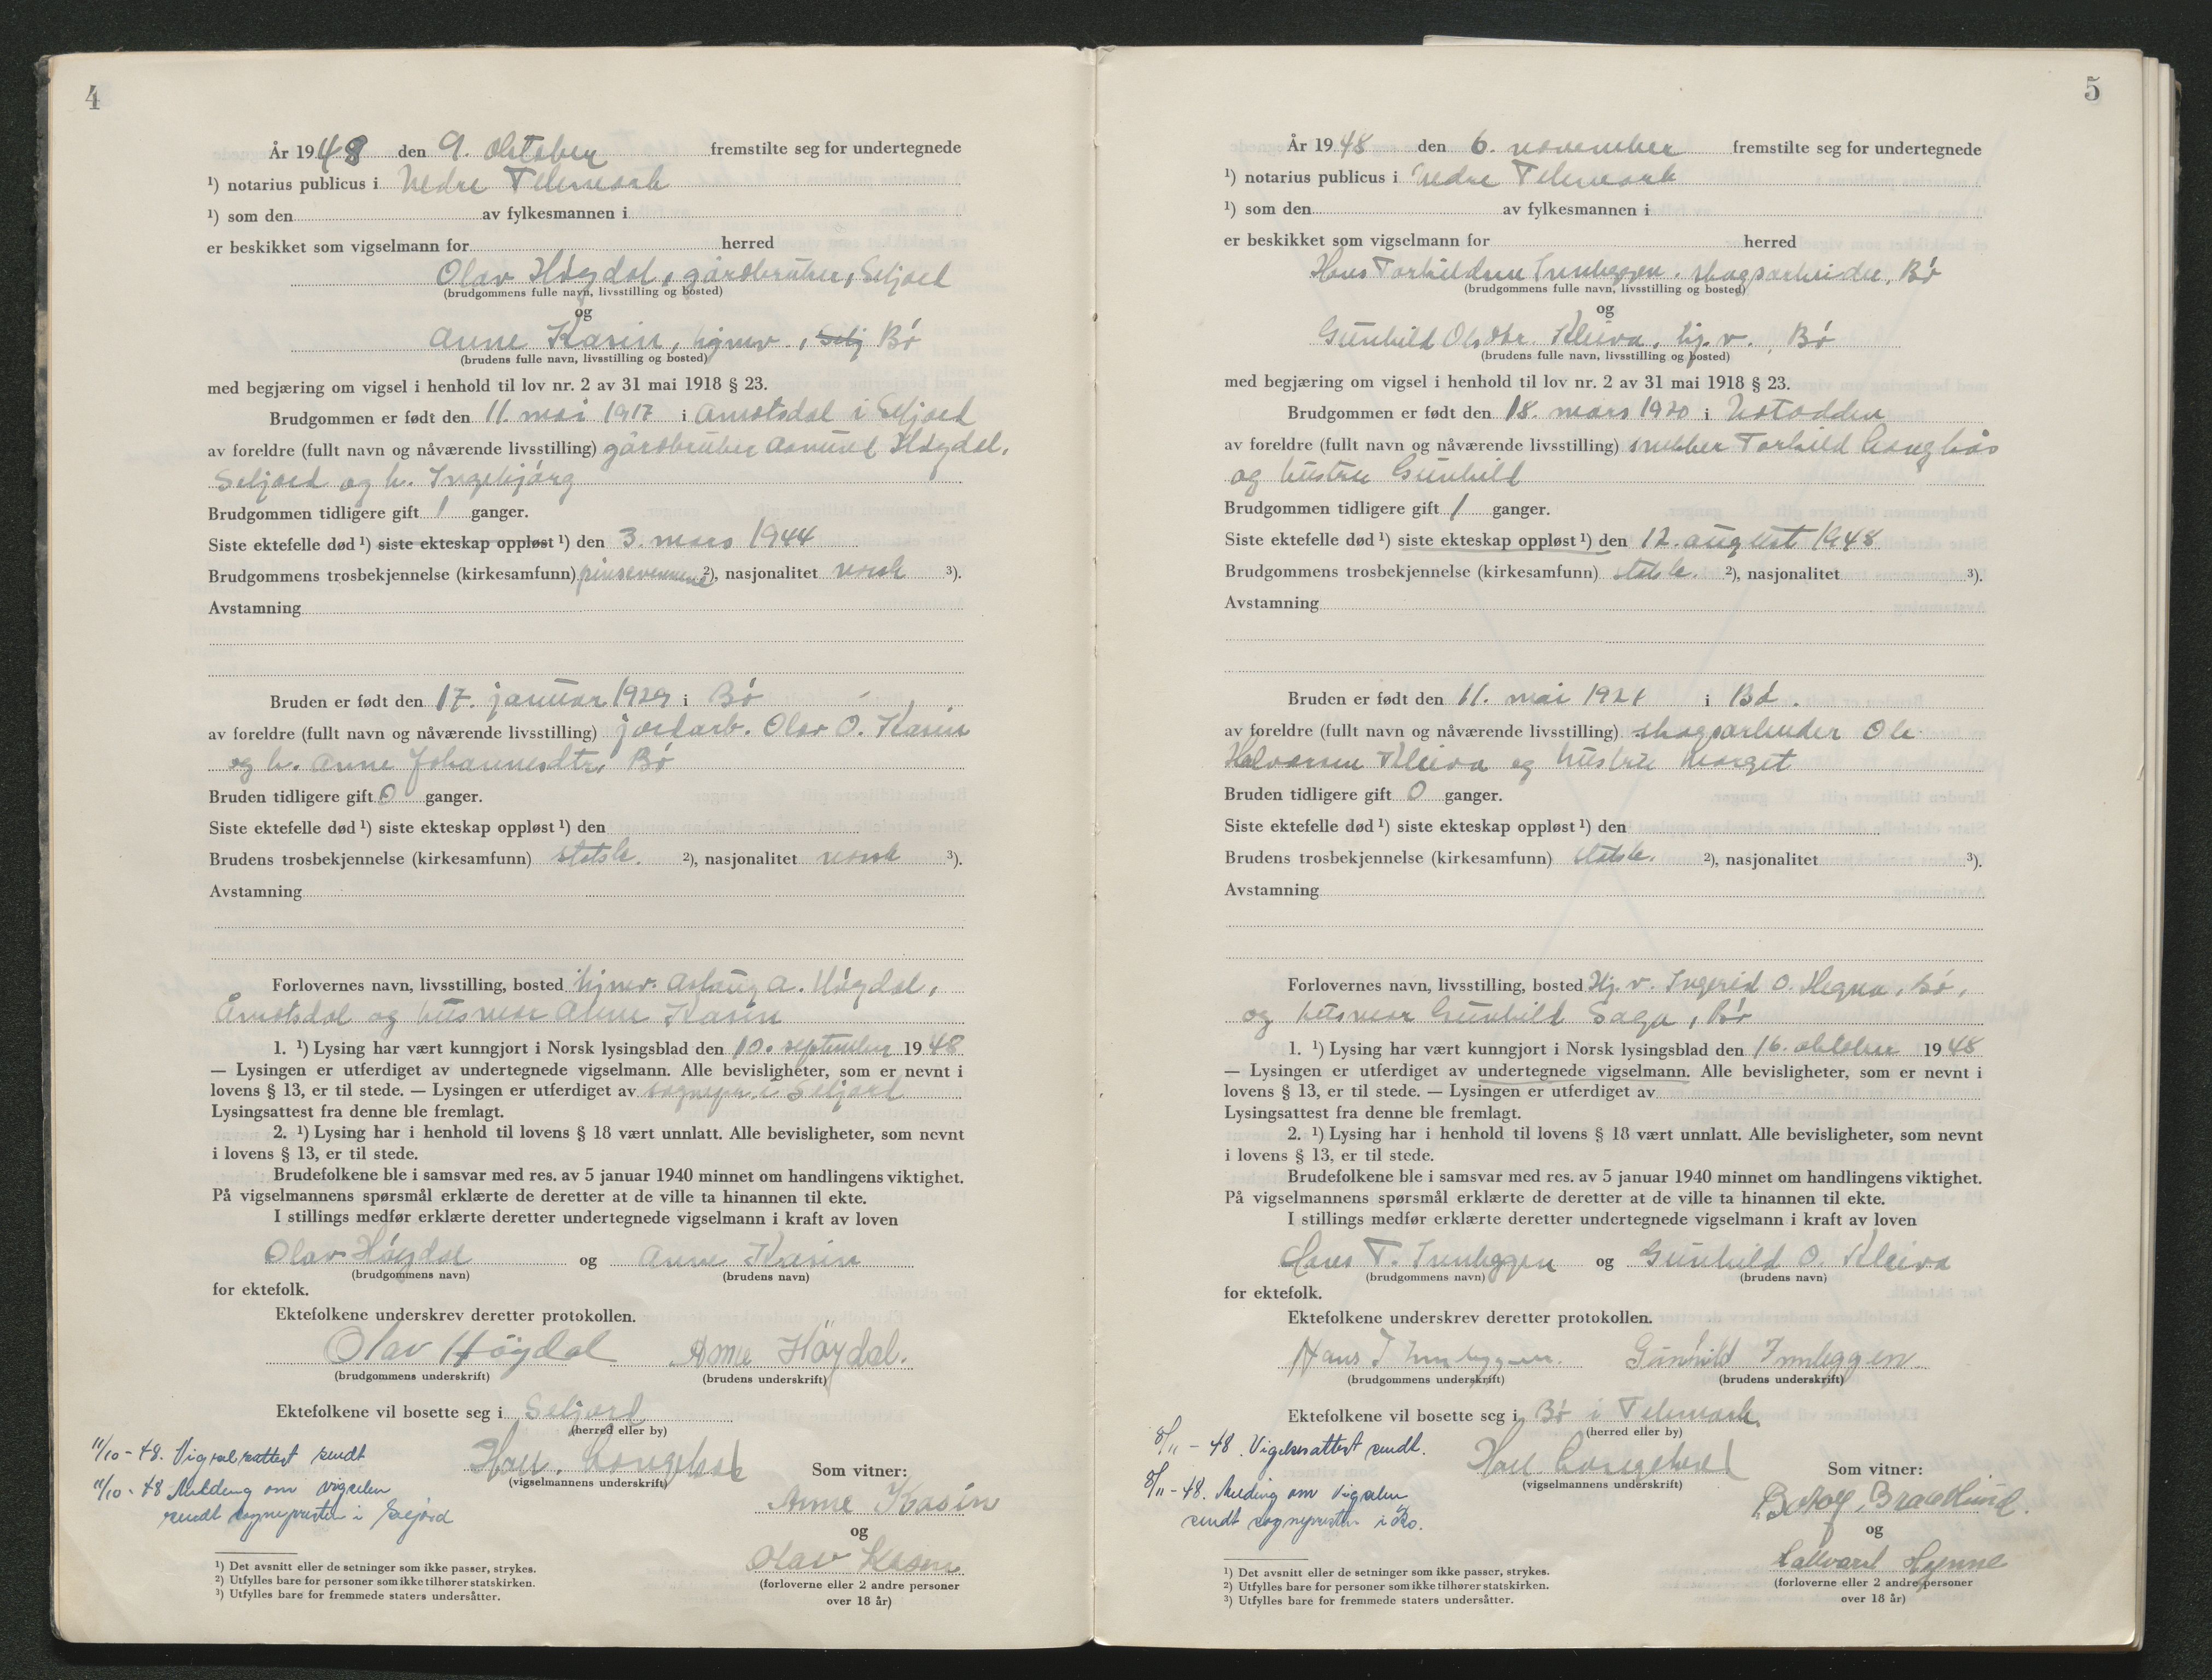 4
År 1948 den 9. Oktober fremstilte seg for undertegnede
¹) notarius publicus i Nedre Telemark
¹) som den av fylkesmannen i
er beskikket som vigselmann for herred
Olav Høgdal, gårdbruker, Seljord
(brudgommens fulle navn, livsstilling og bosted)
og
Anne Kasin, hjmv., Selj Bø
(brudens fulle navn, livsstilling og bosted)
med begjæring om vigsel i henhold til lov nr. 2 av 31 mai 1918 § 23.
Brudgommen er født den 11. mai 1917 i Åmotsdal i Seljord
av foreldre (fullt navn og nåværende livsstilling) gårdbruker Aamund Høgdal,
Seljord og h. Ingebjørg
Brudgommen tidligere gift 1 ganger.
Siste ektefelle død ¹) siste ekteskap oppløst ¹) den 3. mars 1944
Brudgommens trosbekjennelse (kirkesamfunn) pinsevennene ²), nasjonalitet norsk ³).
Avstamning
Bruden er født den 17. januar 1929 i Bø
av foreldre (fullt navn og nåværende livsstilling) jordarb. Olav O. Kasin
og h. Anne Johannesdtr. Bø
Bruden tidligere gift 0 ganger.
Siste ektefelle død ¹) siste ekteskap oppløst ¹) den
Brudens trosbekjennelse (kirkesamfunn) statsk. ²), nasjonalitet norsk ³).
Avstamning
Forlovernes navn, livsstilling, bosted hjmv. Aslaug A. Høgdal,
Åmotsdal og husmor Anne Kasin
1. ¹) Lysing har vært kunngjort i Norsk lysingsblad den 10. september 1948
— Lysingen er utferdiget av undertegnede vigselmann. Alle bevisligheter, som er nevnt i
lovens § 13, er til stede. — Lysingen er utferdiget av sognepr. i Seljord
Lysingsattest fra denne ble fremlagt.
2. ¹) Lysing har i henhold til lovens § 18 vært unnlatt. Alle bevisligheter, som nevnt
i lovens § 13, er til stede.
Brudefolkene ble i samsvar med res. av 5 januar 1940 minnet om handlingens viktighet.
På vigselmannens spørsmål erklærte de deretter at de ville ta hinannen til ekte.
I stillings medfør erklærte deretter undertegnede vigselmann i kraft av loven
Olav Høgdal og Anne Kasin
(brudgommens navn) (brudens navn)
for ektefolk.
Ektefolkene underskrev deretter protokollen.
Olav Höydal Anne Höydal.
(brudgommens underskrift) (brudens underskrift)
Ektefolkene vil bosette seg i Seljord
(herred eller by)
11/10 - 48. Vigselsattest sendt
(vigselmannens underskrift)
11/10 - 48 Melding om vigselen
sendt sognepresten i Seljord
Som vitner:
Anne Kasin
og
Olav Kasin
(forloverne eller 2 andre personer
over 18 år)
¹) Det avsnitt eller de setninger som ikke passer, strykes.
²) Utfylles bare for personer som ikke tilhører statskirken.
³) Utfylles bare for fremmede staters undersåtter.
5
År 1948 den 6. november fremstilte seg for undertegnede
¹) notarius publicus i Nedre Telemark
¹) som den av fylkesmannen i
er beskikket som vigselmann for herred
Hans Torkildsen Innleggen, skogsarbeider, Bø
(brudgommens fulle navn, livsstilling og bosted)
og
Gunhild Olsdtr. Kleiva, hj. v., Bø
(brudens fulle navn, livsstilling og bosted)
med begjæring om vigsel i henhold til lov nr. 2 av 31 mai 1918 § 23.
Brudgommen er født den 18. mars 1920 i Notodden
av foreldre (fullt navn og nåværende livsstilling) snekker Torkild
og hustru Gunhild
Brudgommen tidligere gift 1 ganger.
Siste ektefelle død ¹) siste ekteskap oppløst ¹) den 12. august 1948
Brudgommens trosbekjennelse (kirkesamfunn) statsk. ²), nasjonalitet ³).
Avstamning
Bruden er født den 11. mai 1921 i Bø.
av foreldre (fullt navn og nåværende livsstilling) skogsarbeider Ole
Halvorsen Kleiva og hustru Margit
Bruden tidligere gift 0 ganger.
Siste ektefelle død ¹) siste ekteskap oppløst ¹) den
Brudens trosbekjennelse (kirkesamfunn) statsk. ²), nasjonalitet ³).
Avstamning
Forlovernes navn, livsstilling, bosted Hj. v. Ingerid O. Hegna, Bø,
og husmor Gunhild Saga, Bø
1. ¹) Lysing har vært kunngjort i Norsk lysingsblad den 16. oktober 1948
— Lysingen er utferdiget av undertegnede vigselmann. Alle bevisligheter, som er nevnt i
lovens § 13, er til stede. — Lysingen er utferdiget av
Lysingsattest fra denne ble fremlagt.
2. ¹) Lysing har i henhold til lovens § 18 vært unnlatt. Alle bevisligheter, som nevnt
i lovens § 13, er til stede.
Brudefolkene ble i samsvar med res. av 5 januar 1940 minnet om handlingens viktighet.
På vigselmannens spørsmål erklærte de deretter at de ville ta hinannen til ekte.
I stillings medfør erklærte deretter undertegnede vigselmann i kraft av loven
Hans T. Innleggen og Gunhild O. Kleiva
(brudgommens navn) (brudens navn)
for ektefolk.
Ektefolkene underskrev deretter protokollen.
Hans T Innleggen. Gunhild Innleggen
(brudgommens underskrift) (brudens underskrift)
Ektefolkene vil bosette seg i Bø i Telemark.
(herred eller by)
8/11 - 48. Vigselsattest sendt.
(vigselmannens underskrift)
8/11 - 48. Melding om vigselen
sendt sognepresten i Bø.
Som vitner:
og
Hallvard
(forloverne eller 2 andre personer
over 18 år)
¹) Det avsnitt eller de setninger som ikke passer, strykes.
²) Utfylles bare for personer som ikke tilhører statskirken.
³) Utfylles bare for fremmede staters undersåtter.